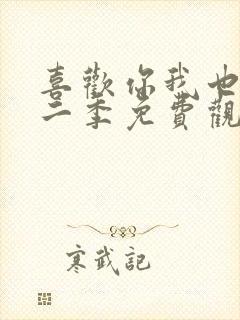 喜歡你我也
二季免費觀
寒武記